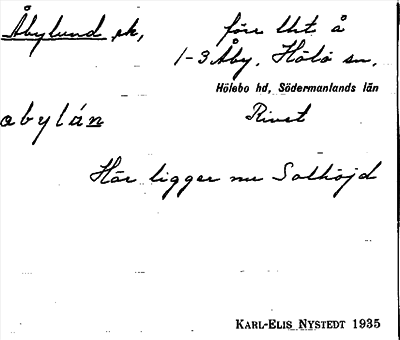 Åbylund sk, förr lht å
1-3 Åby, Hölö sn,
Hölebo hd, Södermanlands län
abylán Rivet
Här ligger nu Solhöjd
KARL-ELIS NYSTEDT 1935